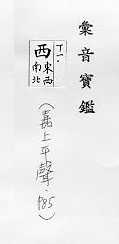 彙音寶鑑
丁一·
西東西
南北
(嘉上平聲·